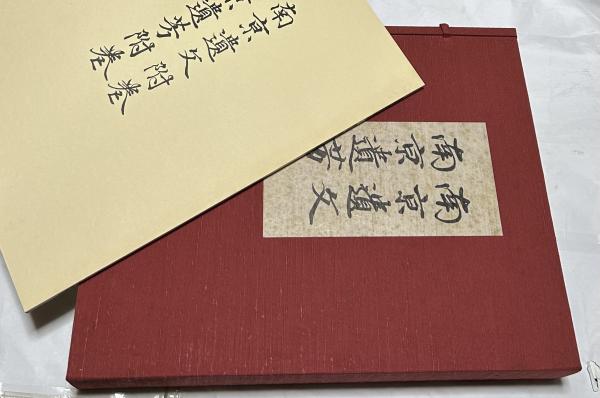 南京遺文 附巻
京遺芳 附巻
南京遺文
南京遺芳